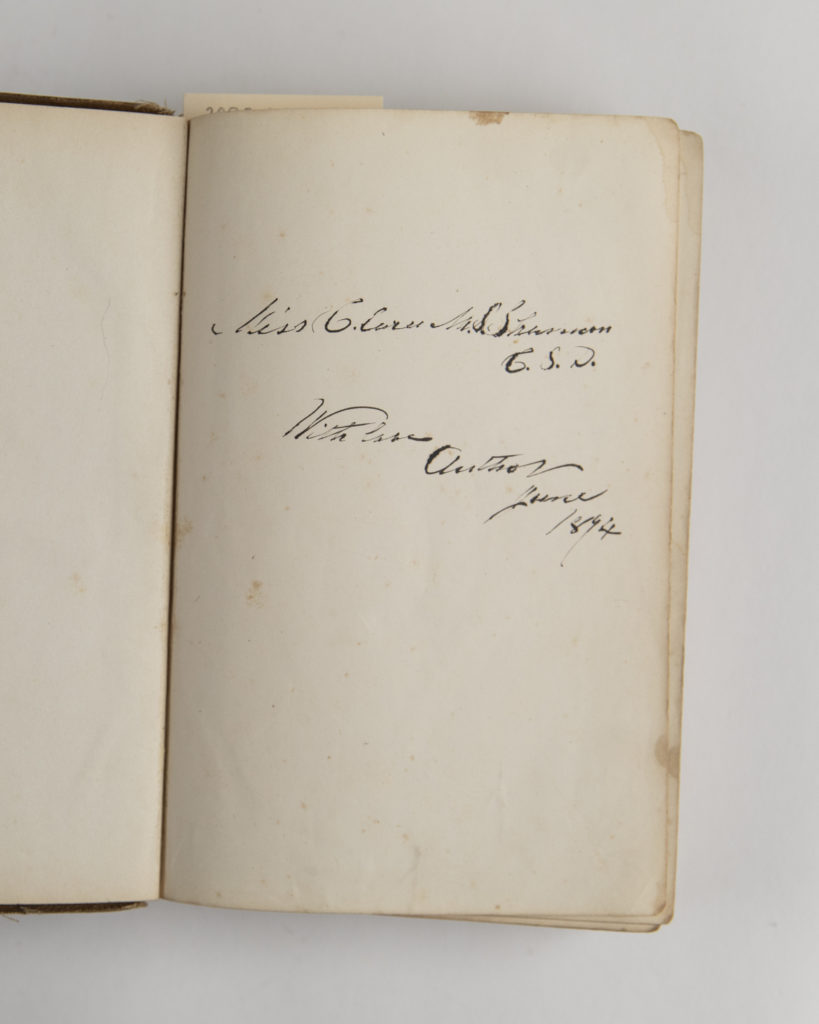 Miss Clara M. S. Shannon
C. S. D.
With love
Author
June
1894